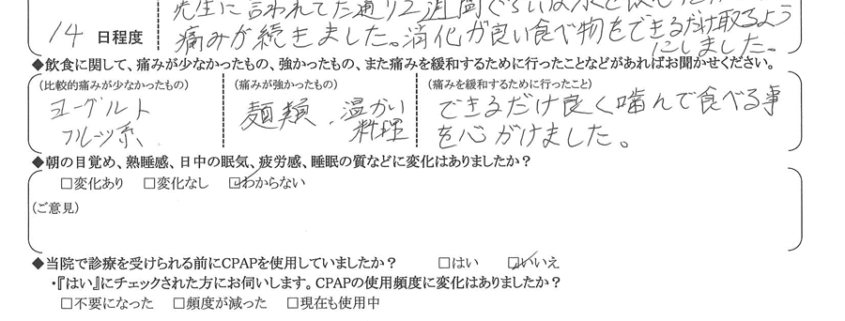 先生に言われてた通り2週間ぐらいは
14 日程度
痛みが続きました。消化が良い食べ物をできるだけ取るようにしました。
◆飲食に関して、痛みが少なかったもの、強かったもの、また痛みを緩和するために行ったことなどがあればお聞かせください。
(比較的痛みが少なかったもの) (痛みが強かったもの) (痛みを緩和するために行ったこと)
ヨーグルト
フルーツ系
麺類、温かい
料理
できるだけ良く噛んで食べる事
を心がけました。
◆朝の目覚め、熟睡感、日中の眠気、疲労感、睡眠の質などに変化はありましたか？
□変化あり □変化なし ☑わからない
(ご意見)
◆当院で診療を受けられる前にCPAPを使用していましたか？ □はい ☑いいえ
・『はい』にチェックされた方にお伺いします。CPAPの使用頻度に変化はありましたか？
□不要になった □頻度が減った □現在も使用中